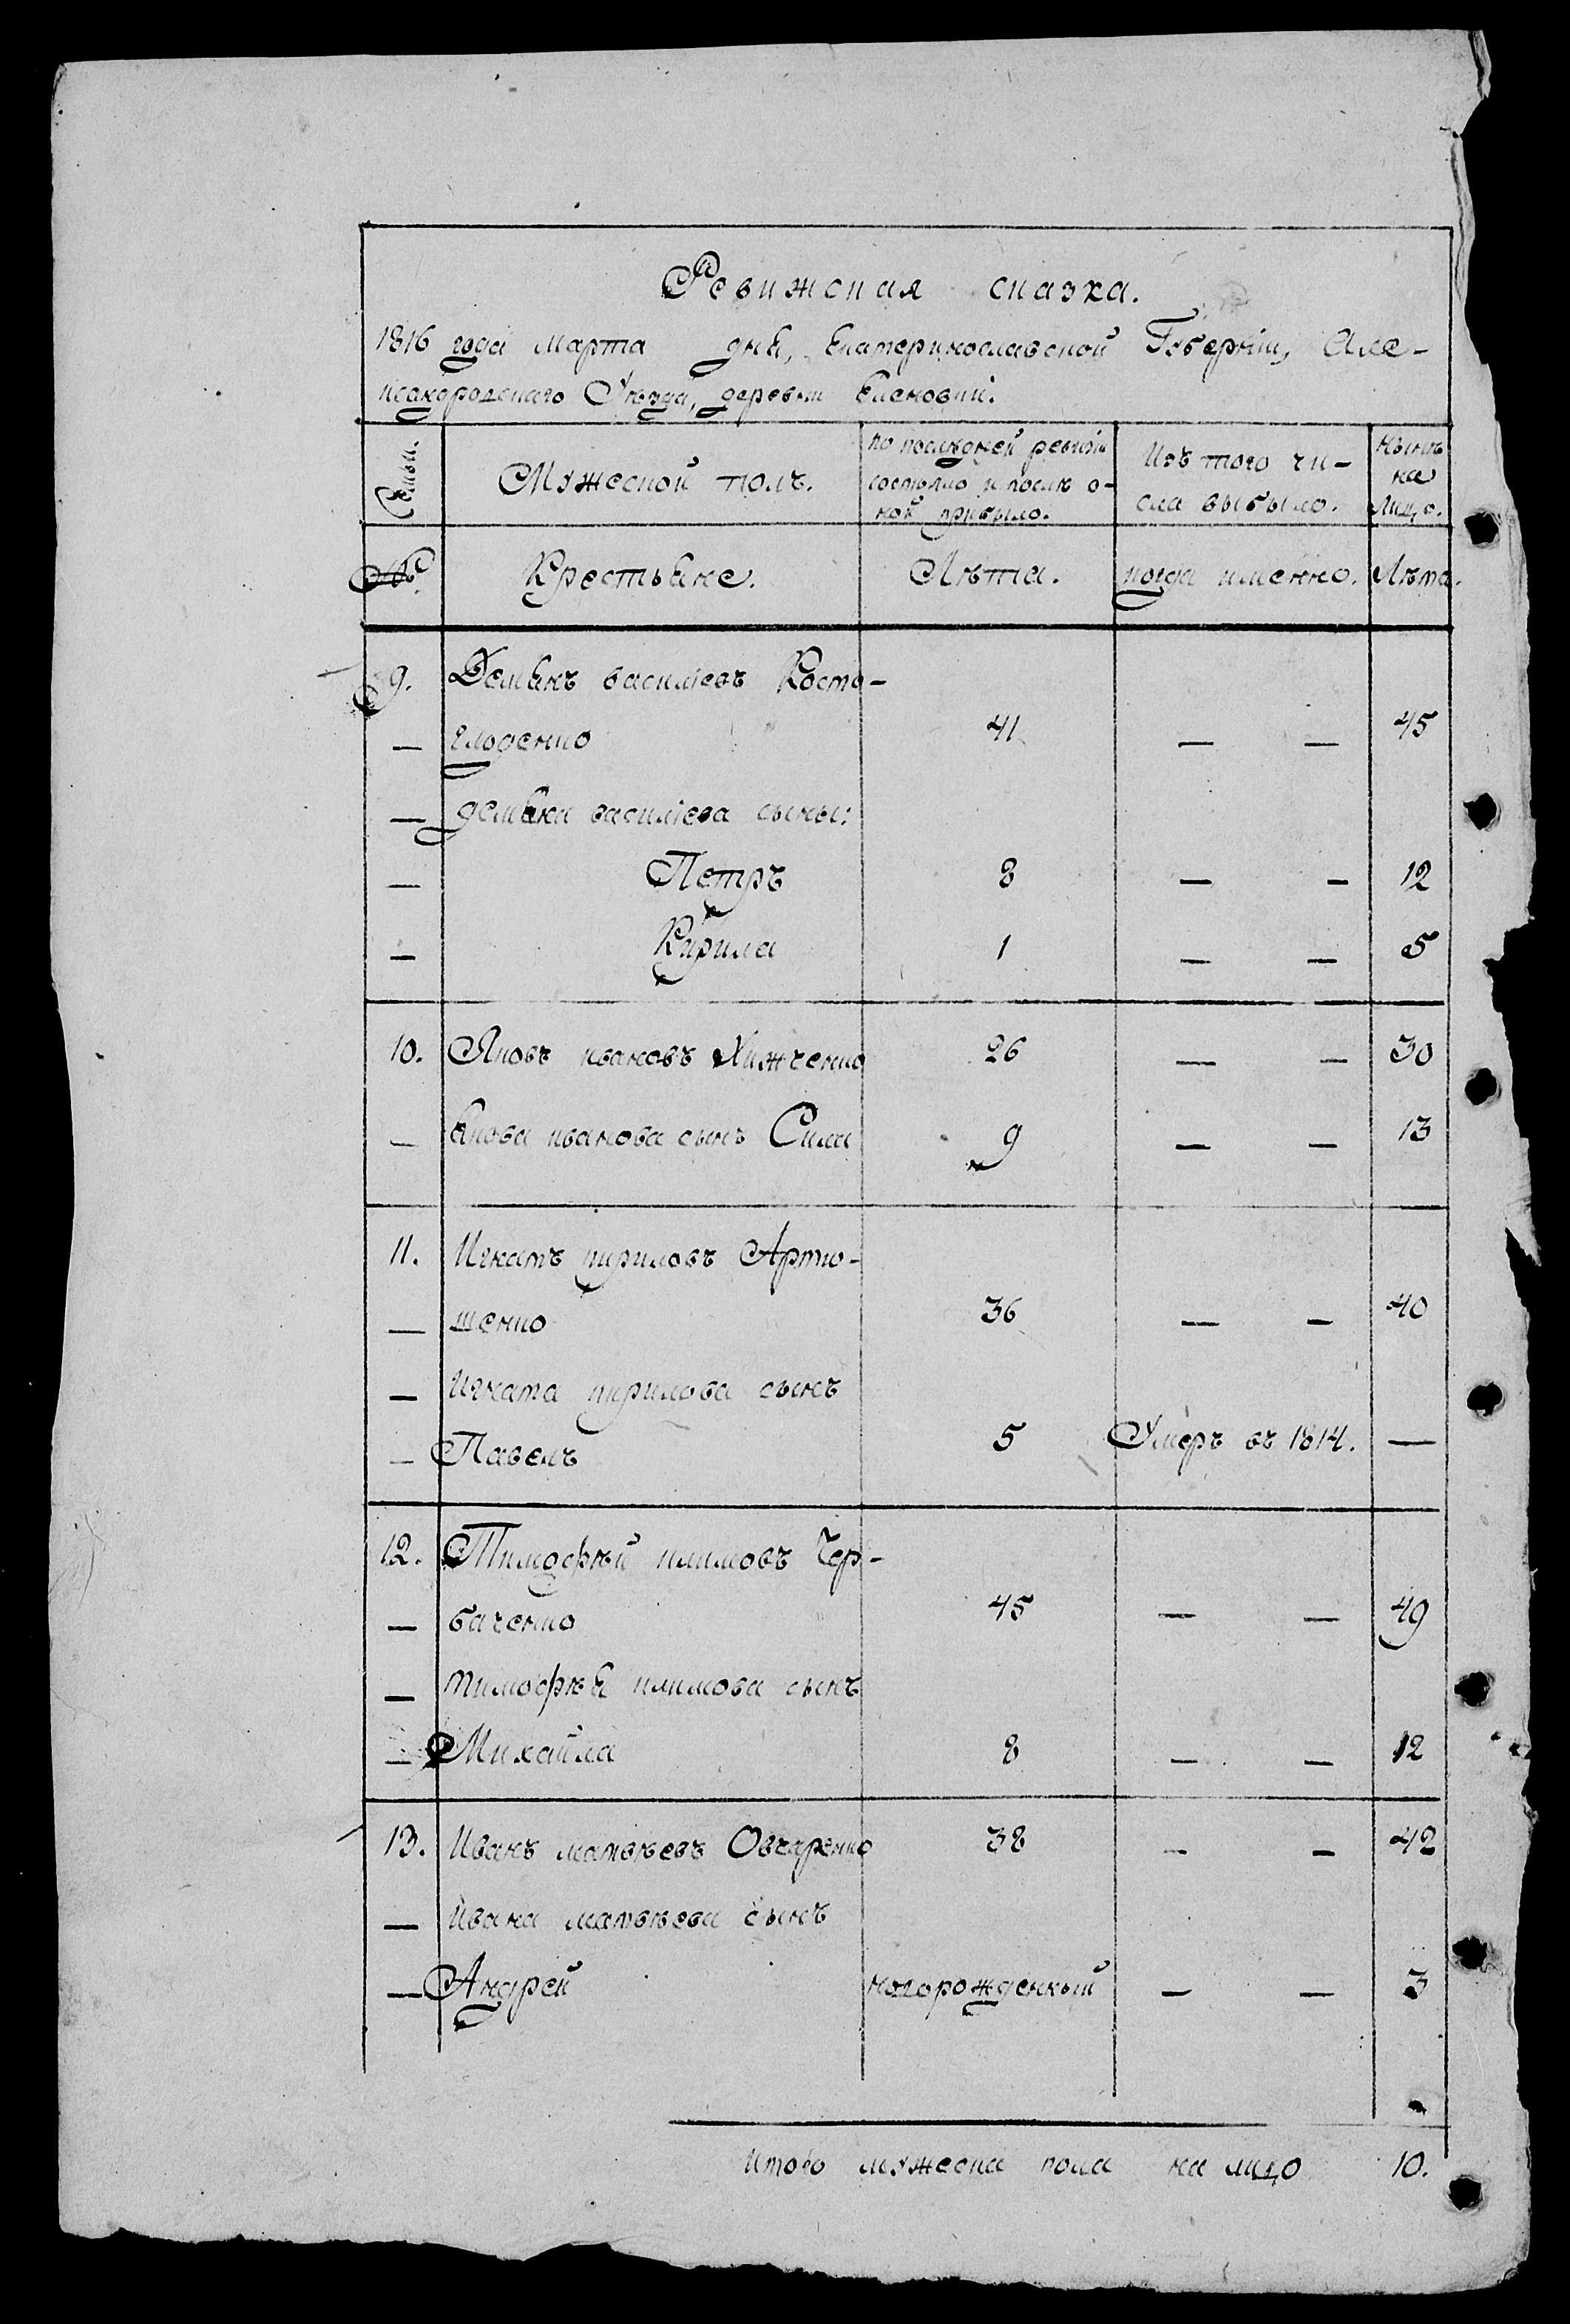 Ревижская сказка.
1816 года марта дня, Екатеринославской Губернiи, Але-
ксандровскаго Уѣзда, деревни Еленовки.
Семьи. Мужеской полъ. по послѣдней ревизiи состояло и послѣ о-ной прибыло. Изъ того чи-сла выбыло. Нынѣ на лицо.
№ Крестьяне. Лѣта. когда именно. Лѣта.
9. Демянъ василiевъ Косто-
— глоденко 41 — — 45
— демяна василiева сыны:
— Петръ 8 — — 12
— Кирила 1 — — 5
10. Яковъ ивановъ Хижченко 26 — — 30
— якова иванова сынъ Сила 9 — — 13
11. Игнатъ кириловъ Артю-
— шенко 36 — — 40
— игната кирилова сынъ
— Павелъ 5 Умеръ въ 1814. —
12. Тимофѣй климовъ Чер-
— баченко 45 — — 49
— тимофѣя климова сынъ
— Михайла 8 — — 12
13. Иванъ матвѣевъ Овчаренко 38 — — 42
— ивана матвѣева сынъ
— Андрей новорожденный — — 3
Итого мужеска пола на лицо 10.